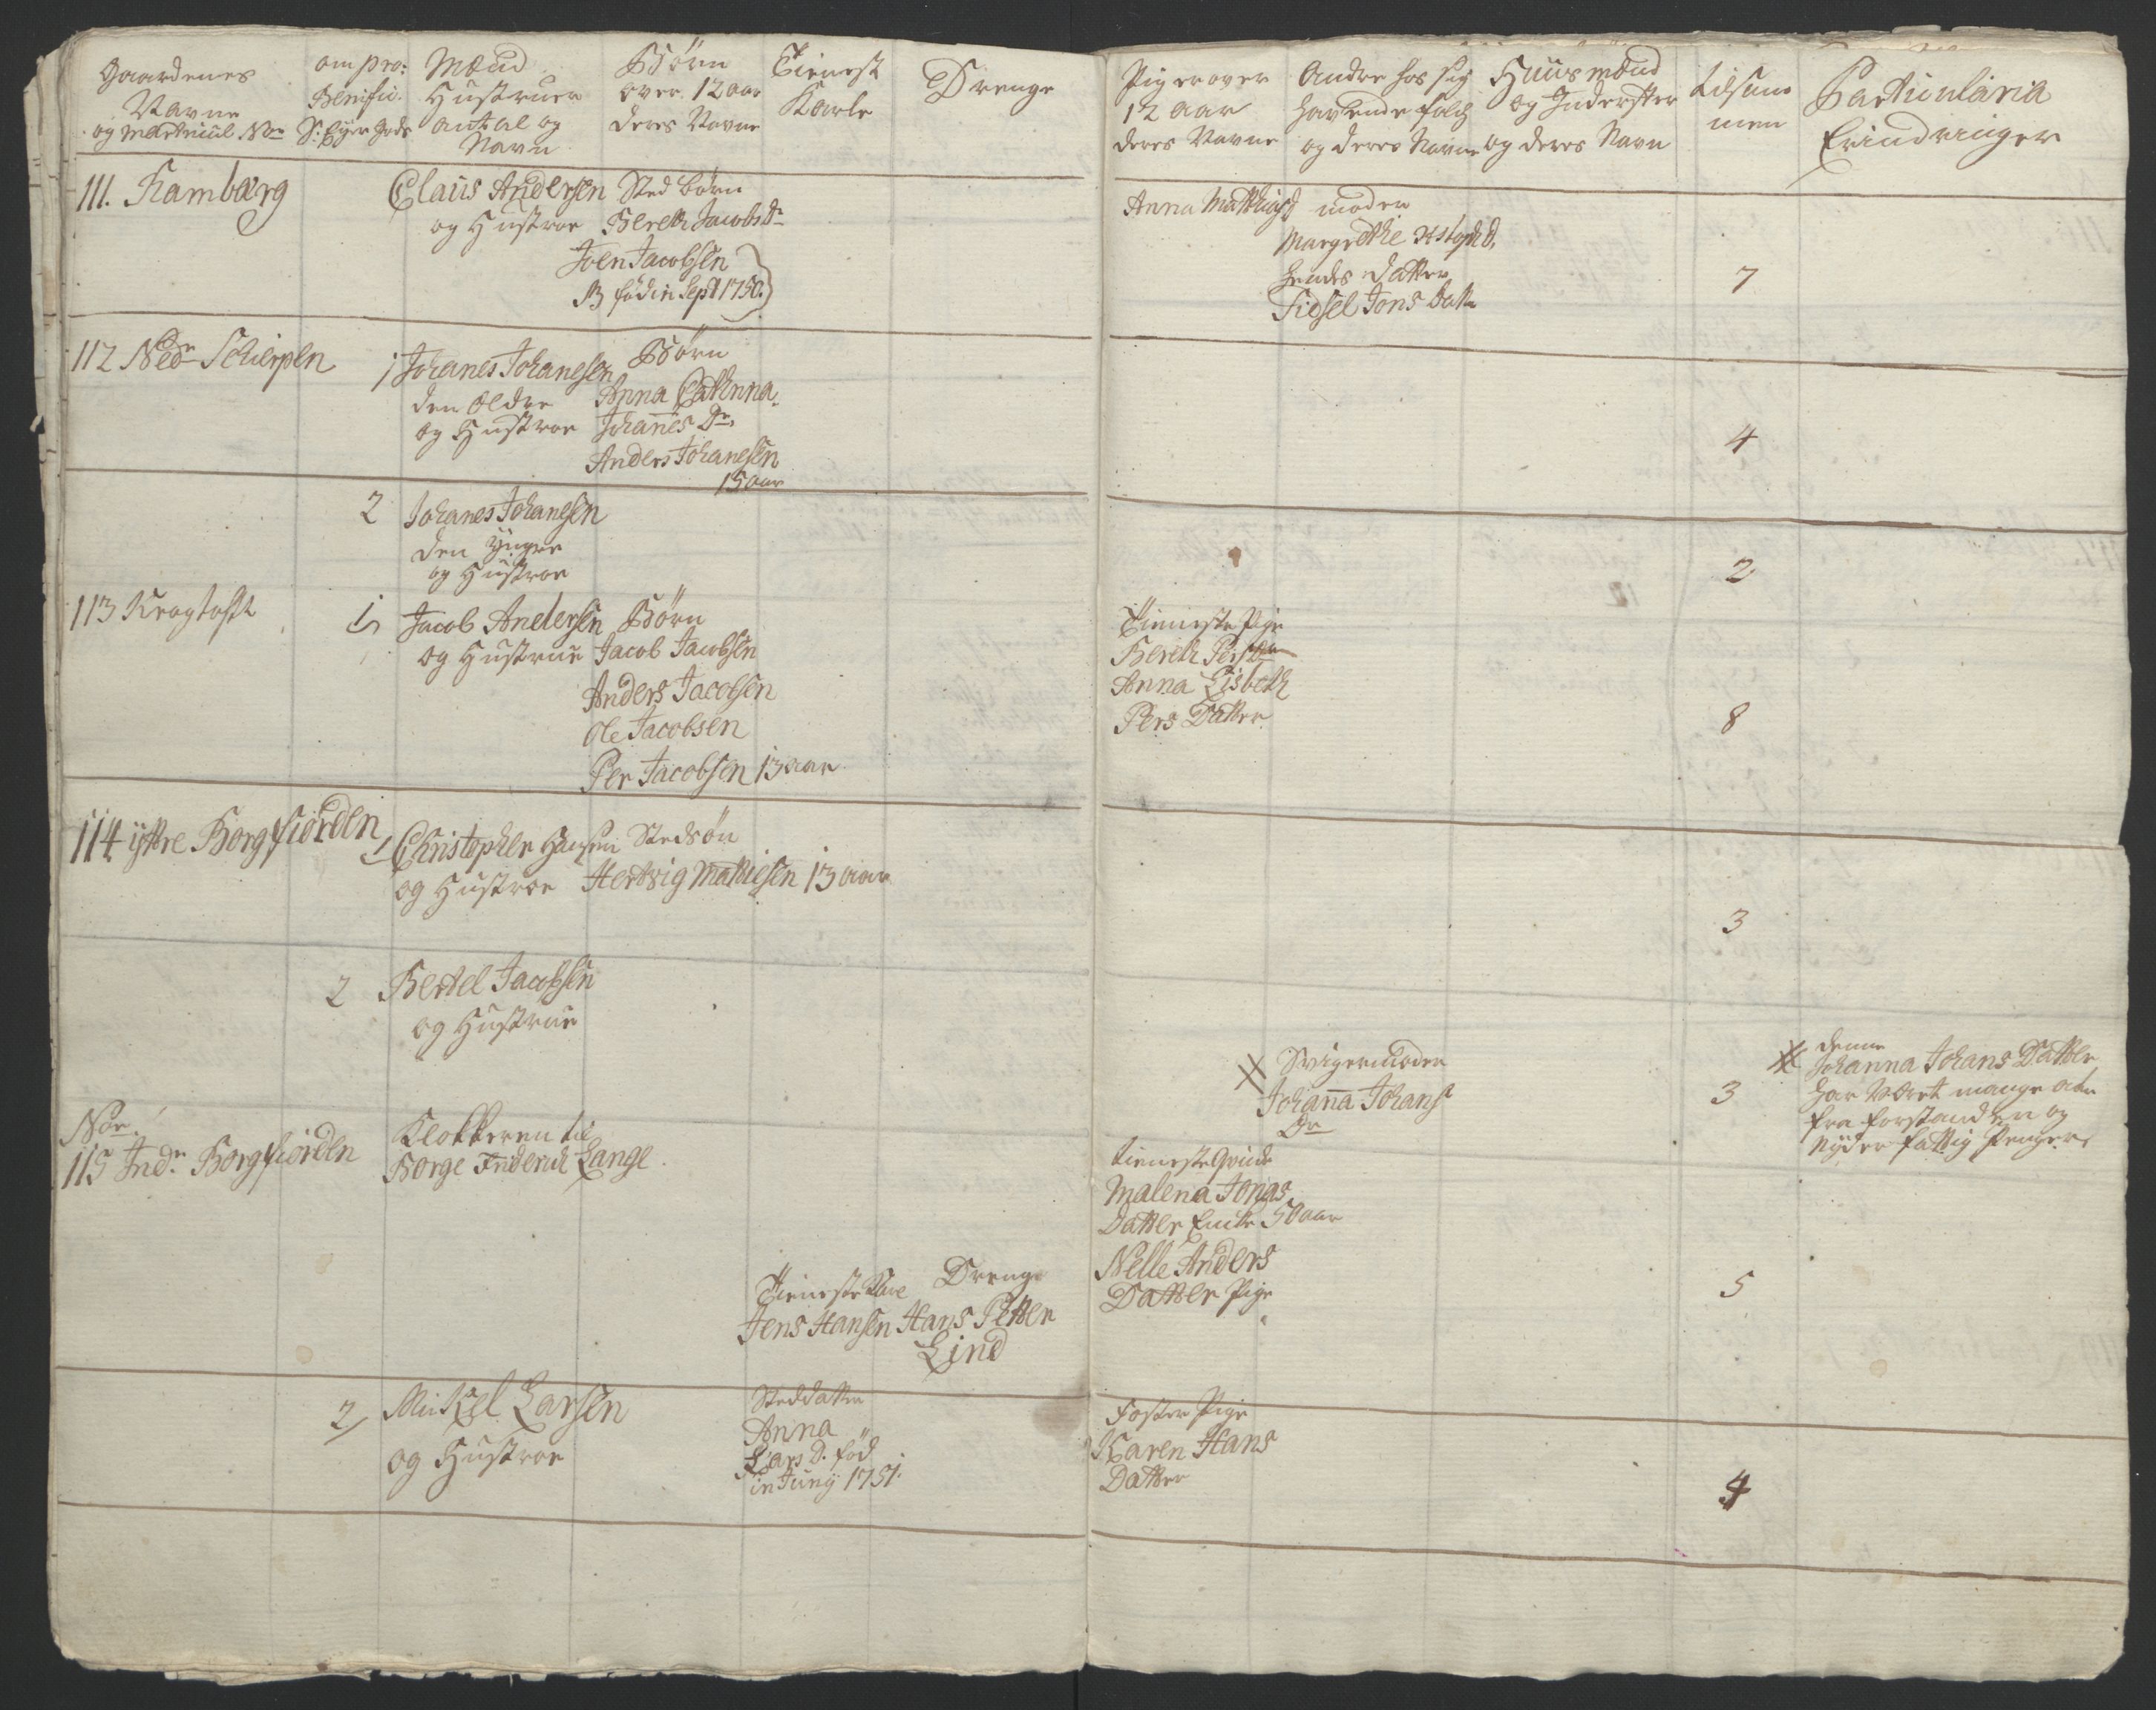 Gaardenes
Navne
og Matricul No
om pro:
Benifici.
Mænd
Hustruer
antal og
Navn
Børn
over 12 aar
deres Navne
Tienest
Karle
Drenge
Piger over
12 aar
deres Navne
Andre hos sig
havende folch
og deres Navne
Huusmænd
og Inderster
og deres Navn
tilsam
men
Particularia
Erindringer
111. Kambærg
Claus Andersen
og Hustroe
Sted børn
Bereth Jacobs Dr
Joen Jacobsen
NB fød in Sept 1750.
Anna Mathias D
moder
Margrethe
hendes datter
Sidsel Jons datter
7
112 Nedr Schierpen
1 Johanes Johanesen
den Eldre
og Hustroe
Børn
Anna Cathrina
Johanes Dr
Anders Johanesen
15 aar
4
2 Johanes Johanesen
den Yngre
og Hustroe
2
113 Kragtoft
1 Jacob Andersen
og Hustrue
Børn
Jacob Jacobsen
Anders Jacobsen
Ole Jacobsen
Per Jacobsen 13 aar
Tieniste Pige
Bereth Persdr
Anna Lisbeth
Pers Datter
8
114 yttre Borgfiorden
1 Christopher Hansen
og Hustroe
Stedsøn
Hertvig Mathiesen 13 aar
3
2 Bertel Jacobsen
og Hustrue
X Svigermoder
Johanna Johans
Dr
3
X denne
Johanna Johans Datter
har Været mange aar
fra forstanden og
Nyder fattig Penger
Nor.
115 Indr Borgfiorden
Klokkeren til
Borge Friderich Lange
Tieneste Karl
Jens Hansen
Dreng
Hans Petter
Lind
tieneste Qvinde
Malena Jonas
Datter Enke 50 aar
Nelle Anders
Datter Pige
5
2 Mickel Larsen
og Hustroe
Steddatter
Anna
Lars D. fød
in Juny 1751.
Foster Pige
Karen Hans
Datter
4